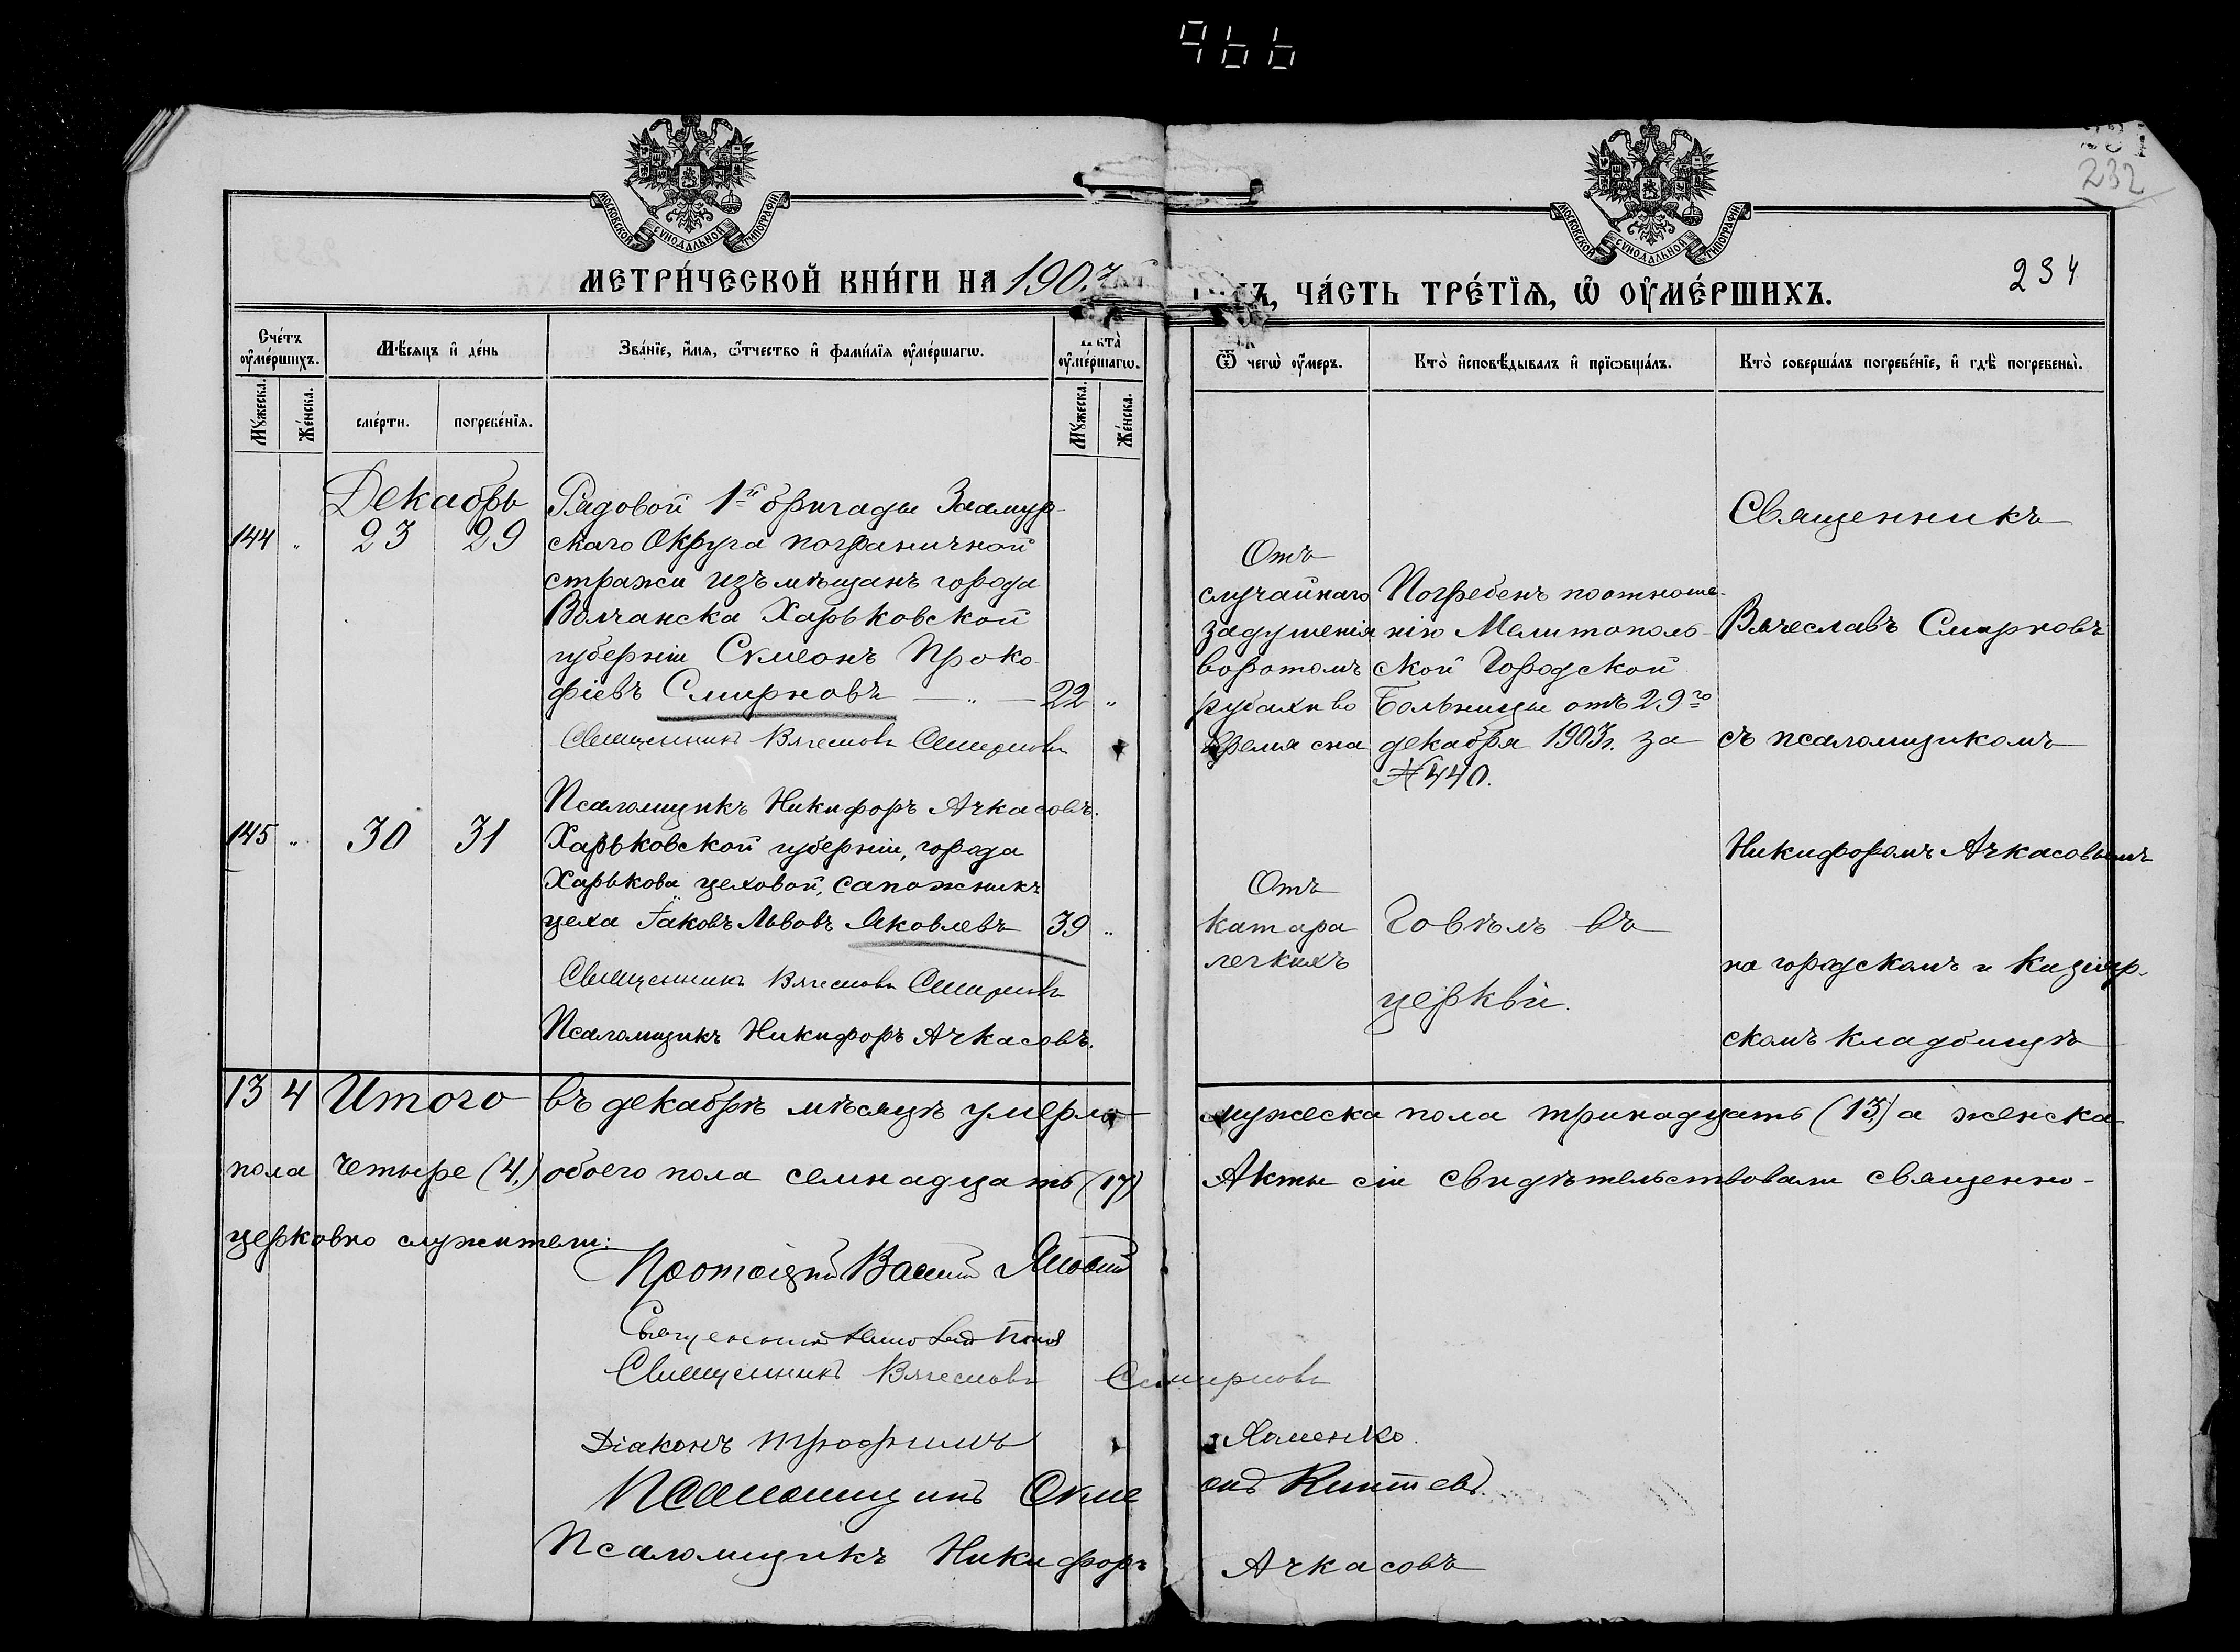 966
МОСКОВСКОЙ СУНОДАЛЬНОЙ ТИПОГРАФІИ.
МОСКОВСКОЙ СУНОДАЛЬНОЙ ТИПОГРАФІИ.
232
234
МЕТРИ́ЧЕСКОЙ КНИ́ГИ НА 1903
ЧА́СТЬ ТРЕ́ТІѦ, Ѽ ОУ҆МЕ́РШИХЪ.
Сче́тъ оу҆ме́ршихъ.
Мꙋ́жеска.
Же́нска.
Мѣ́сѧцъ и҆ де́нь
сме́рти.
погребе́нїѧ.
Зва́нїе, и҆́мѧ, ѻ҆́тчество и҆ фами́лїѧ оу҆ме́ршагѡ.
Лѣта̀ оу҆ме́ршагѡ.
Мꙋ́жеска.
Же́нска.
Ѿ чегѡ̀ оу҆́меръ.
Кто̀ и҆сповѣ́дывалъ и҆ прїѡбща́лъ.
Кто̀ соверша́лъ погребе́нїе, и҆ гдѣ̀ погребены̀.
Декабрь
144 " 23 29
Рядовой 1й бригады Заамур-
скаго Округа пограничной
стражи изъ мѣщанъ города
Волчанска Харьковской
губерніи Сѵмеонъ Проко-
фіевъ Смирновъ — " — 22 "
Священникъ Вячеславъ Смирновъ
Псаломщикъ Никифоръ Ачкасовъ.
Отъ
случайнаго
задушенія
воротомъ
рубахи во
время сна
Погребенъ по отноше-
нію Мелитополь-
ской Городской
Больницы отъ 29го
декабря 1903г. за
№ 440.
Священникъ
Вячеславъ Смирновъ
съ псаломщикомъ
Никифоромъ Ачкасовымъ
на городскомъ и Кизіяр-
скомъ кладбищѣ
145 " 30 31
Харьковской губерніи, города
Харькова цеховой, сапожникъ
цеха Іаковъ Львовъ Яковлевъ 39 "
Священникъ Вячеславъ Смирновъ
Псаломщикъ Никифоръ Ачкасовъ.
Отъ
катара
легкихъ
Говѣлъ въ
церкви.
13 4 Итого въ декабрѣ мѣсяцѣ умерло мужеска пола тринадцать (13,) а женска
пола четыре (4,) обоего пола семнадцать (17) Акты сіи свидѣтельствовали священно-
церковно служители:
Протоіерей Василій
Священникъ
Священникъ Вячеславъ Смирновъ
Діаконъ Трофимъ Хоменко.
Псаломщикъ Сѵмеонъ
Псаломщикъ Никифоръ Ачкасовъ